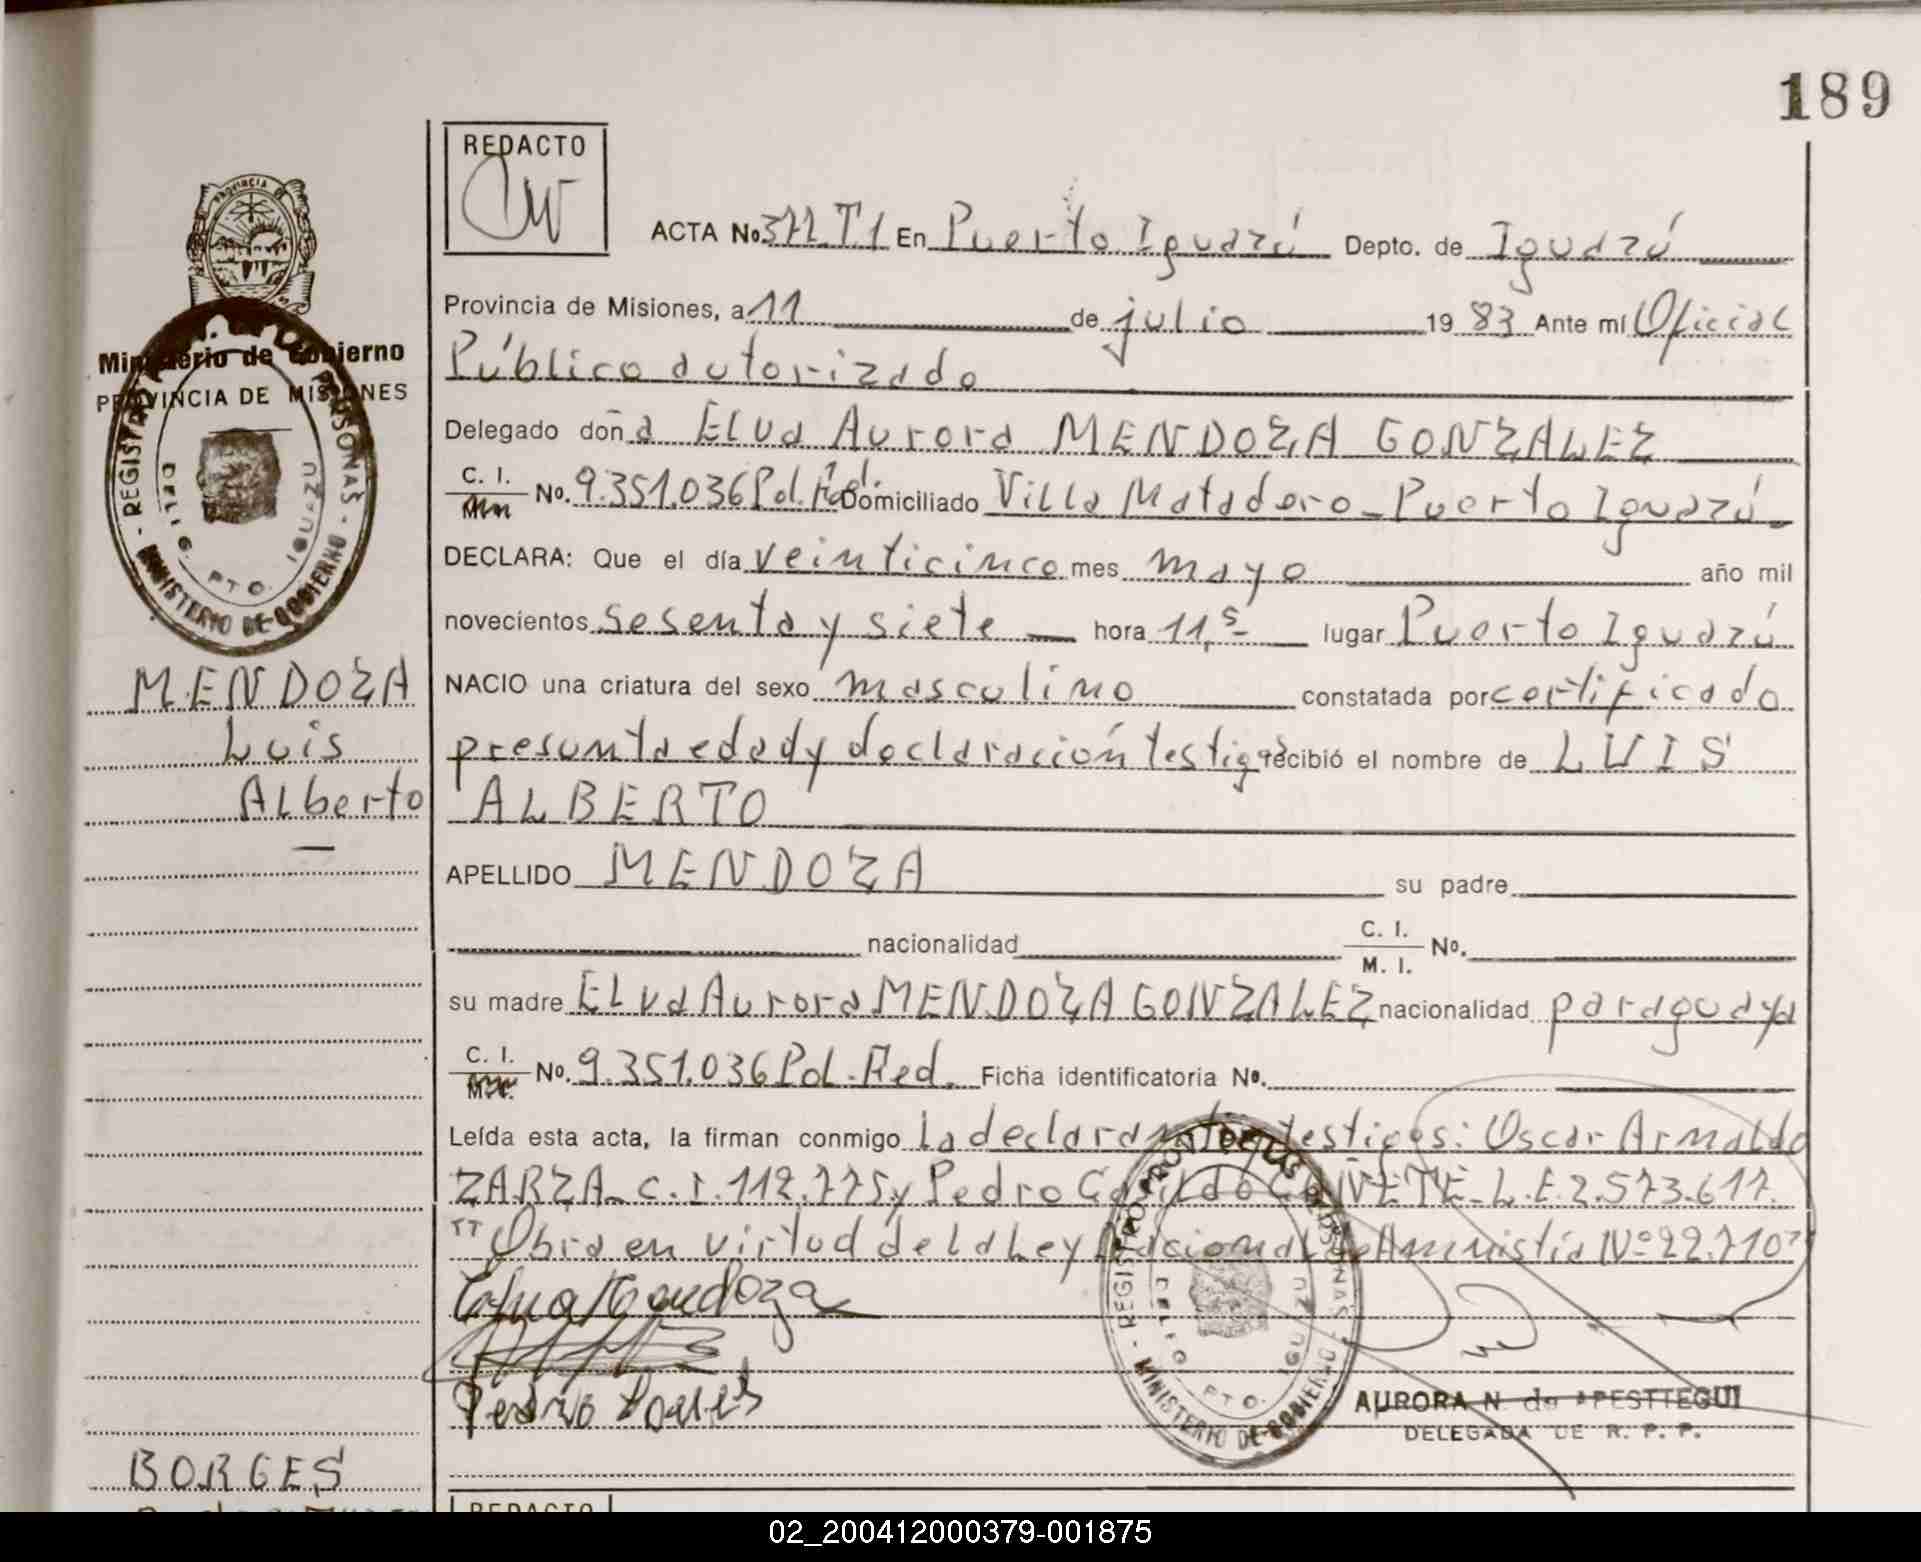 189
REDACTO
PROVINCIA DE
ACTA No 377 T1 En Puerto Iguazú Depto. de Iguazú
Provincia de Misiones, a 11 de julio 1983 Ante mí Oficial
Público autorizado
Delegado doña Elva Aurora MENDOZA GONZALEZ
C. I. No. 9.351.036 Pol. Fed. Domiciliado Villa Matadero - Puerto Iguazú -
DECLARA: Que el día veinticinco mes mayo año mil
novecientos sesenta y siete hora 11,5 lugar Puerto Iguazú
NACIO una criatura del sexo masculino constatada por certificado
presunta edad y declaración testigos recibió el nombre de LUIS
ALBERTO
APELLIDO MENDOZA su padre
nacionalidad C. I. M. I. No.
su madre Elva Aurora MENDOZA GONZALEZ nacionalidad paraguaya
C. I. No. 9.351.036 Pol. Fed. Ficha identificatoria No.
Leída esta acta, la firman conmigo la declarante y testigos: Oscar Arnaldo
ZARZA - C.I. 112.775 y Pedro CAÑETE - L.E. 2.573.617.
"Obra en virtud de la Ley Nacional de Amnistía Nº 22.710"
Elva Mendoza
Pedro
AURORA N. de APESTTEGUI
DELEGADA DE R. P. P.
REGISTRO PROV. DE LAS PERSONAS - MINISTERIO DE GOBIERNO -
DELEG. PTO. IGUAZU
Ministerio de Gobierno
PROVINCIA DE MISIONES
REGISTRO PROV. DE LAS PERSONAS - MINISTERIO DE GOBIERNO -
DELEG. PTO. IGUAZU
MENDOZA
Luis
Alberto
BORGES
REDACTO
02_200412000379-001875